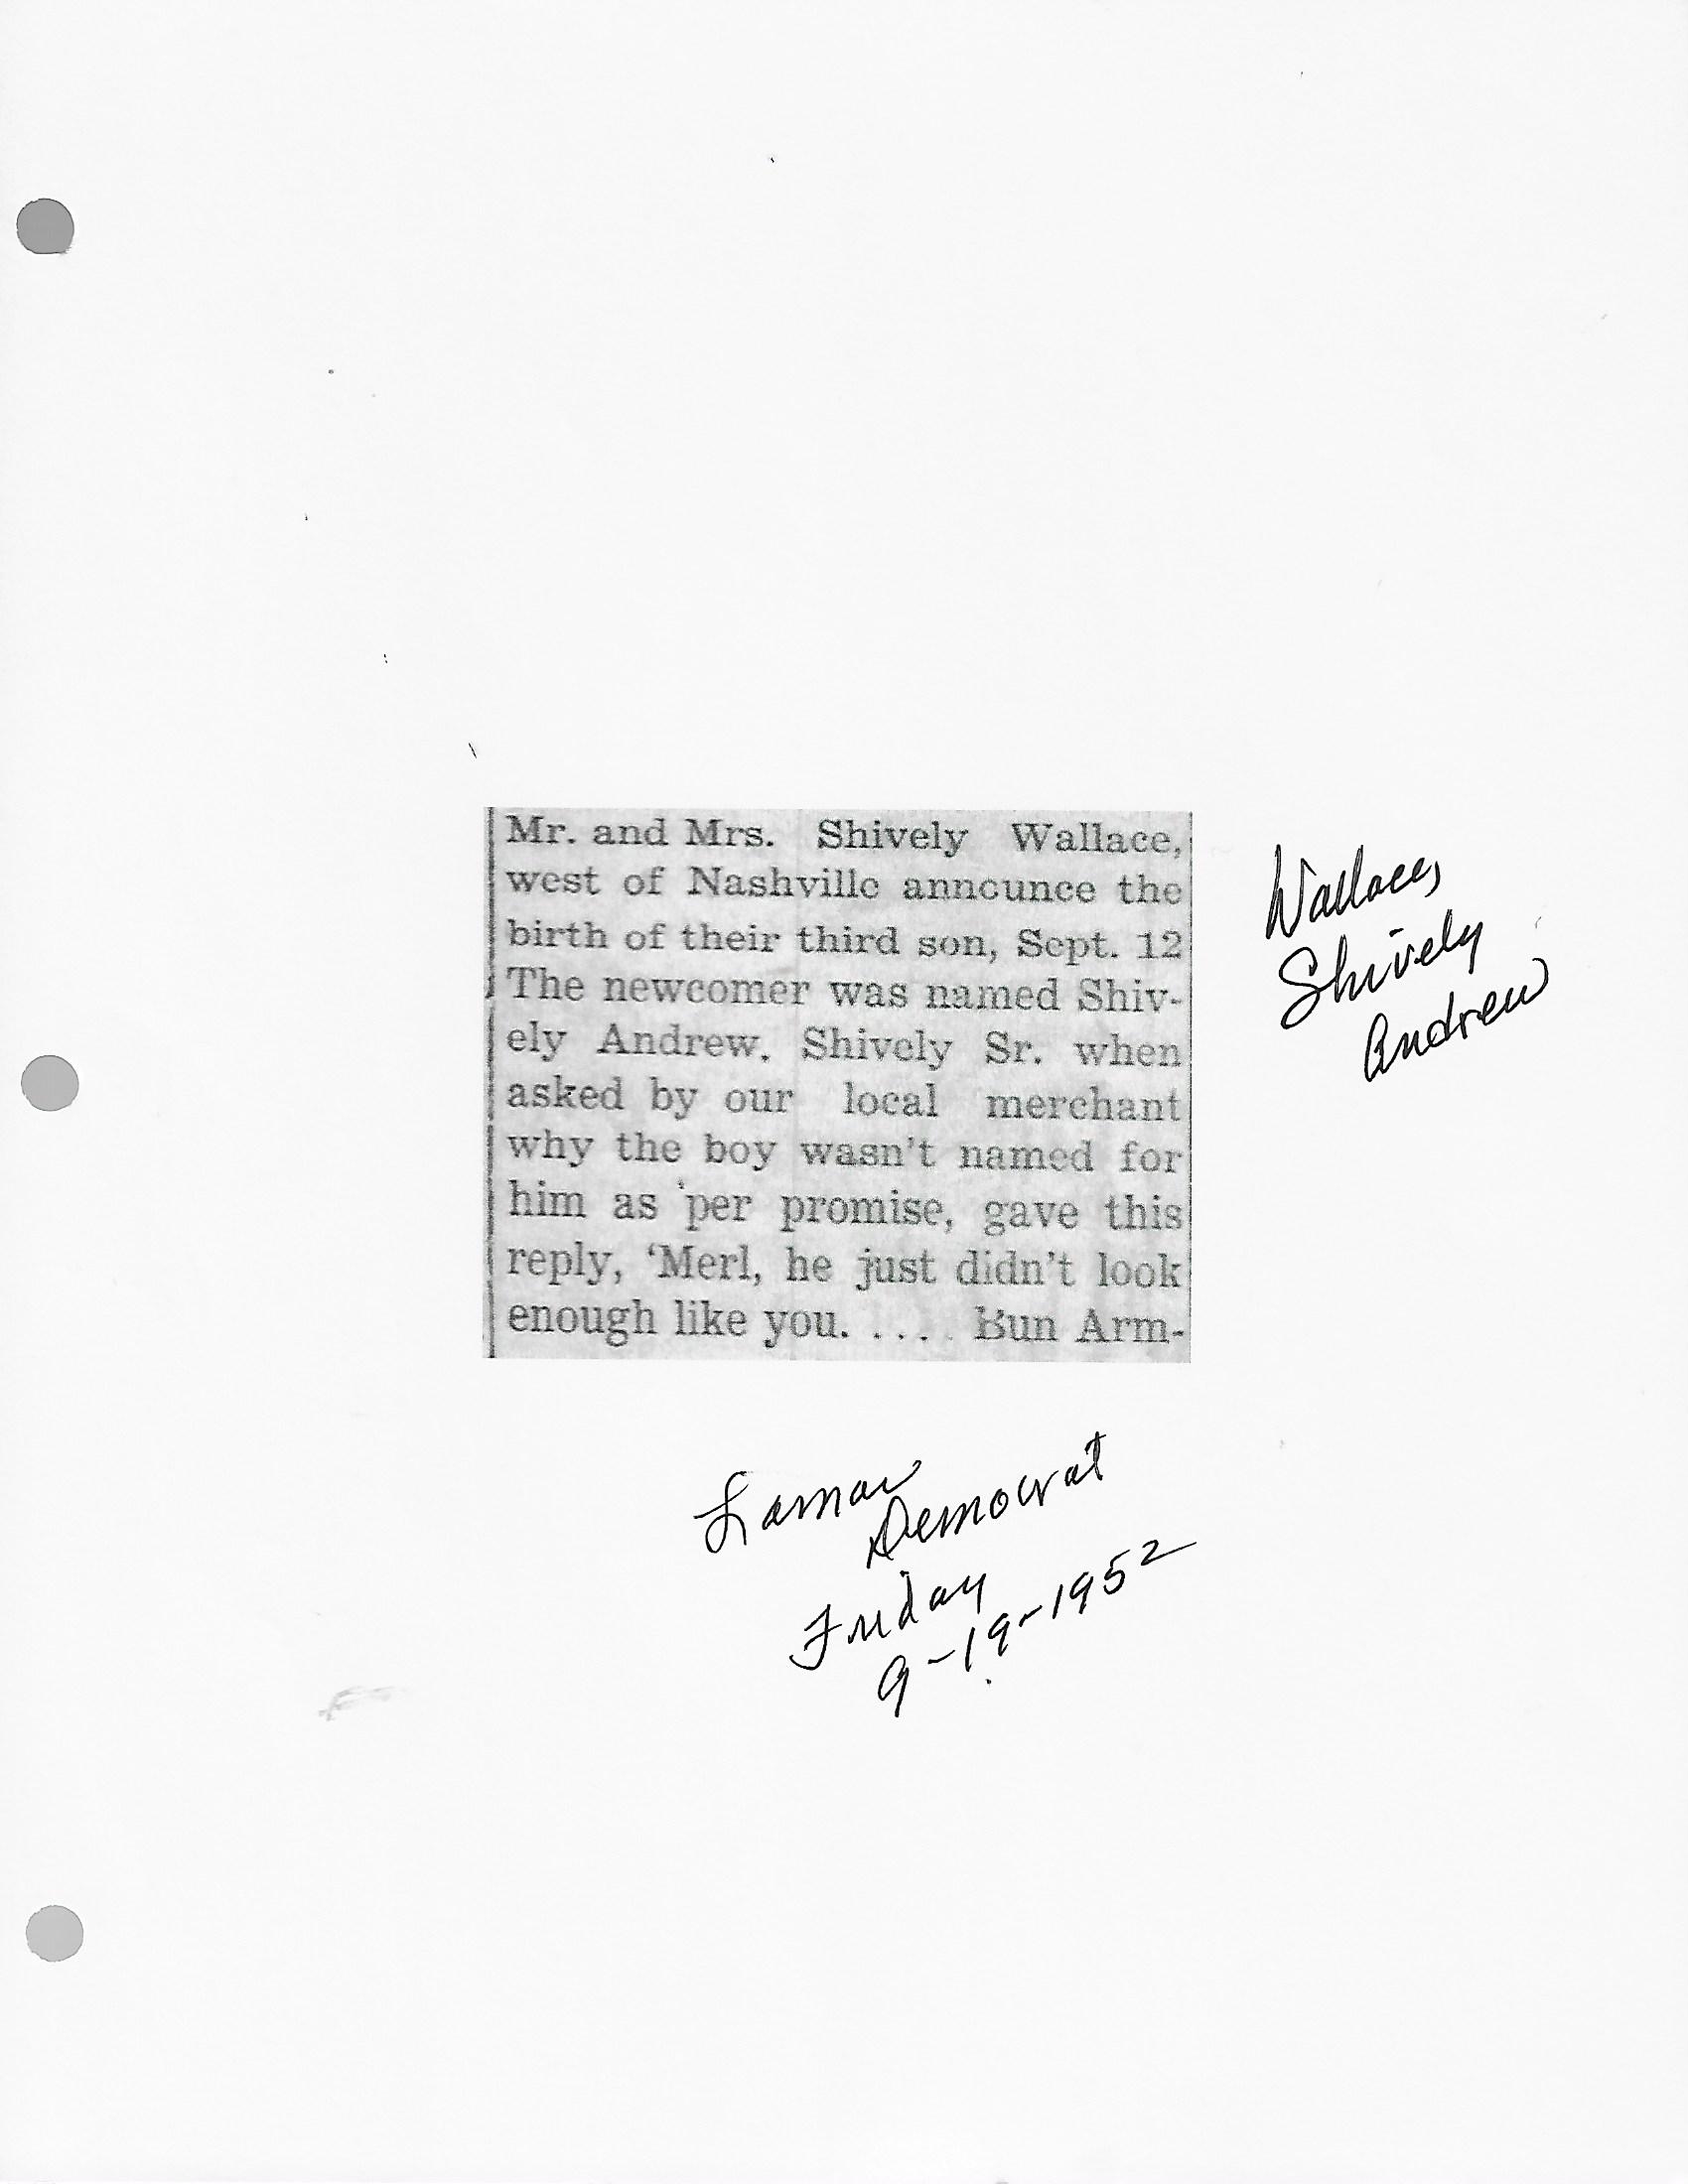 Mr. and Mrs. Shively Wallace,
west of Nashville announce the
birth of their third son, Sept. 12
The newcomer was named Shiv-
ely Andrew. Shively Sr. when
asked by our local merchant
why the boy wasn't named for
him as per promise, gave this
reply, 'Merl, he just didn't look
enough like you. .... Bun Arm-
Wallace,
Shively
Andrew
Lamar
Democrat
Friday
9-19-1952